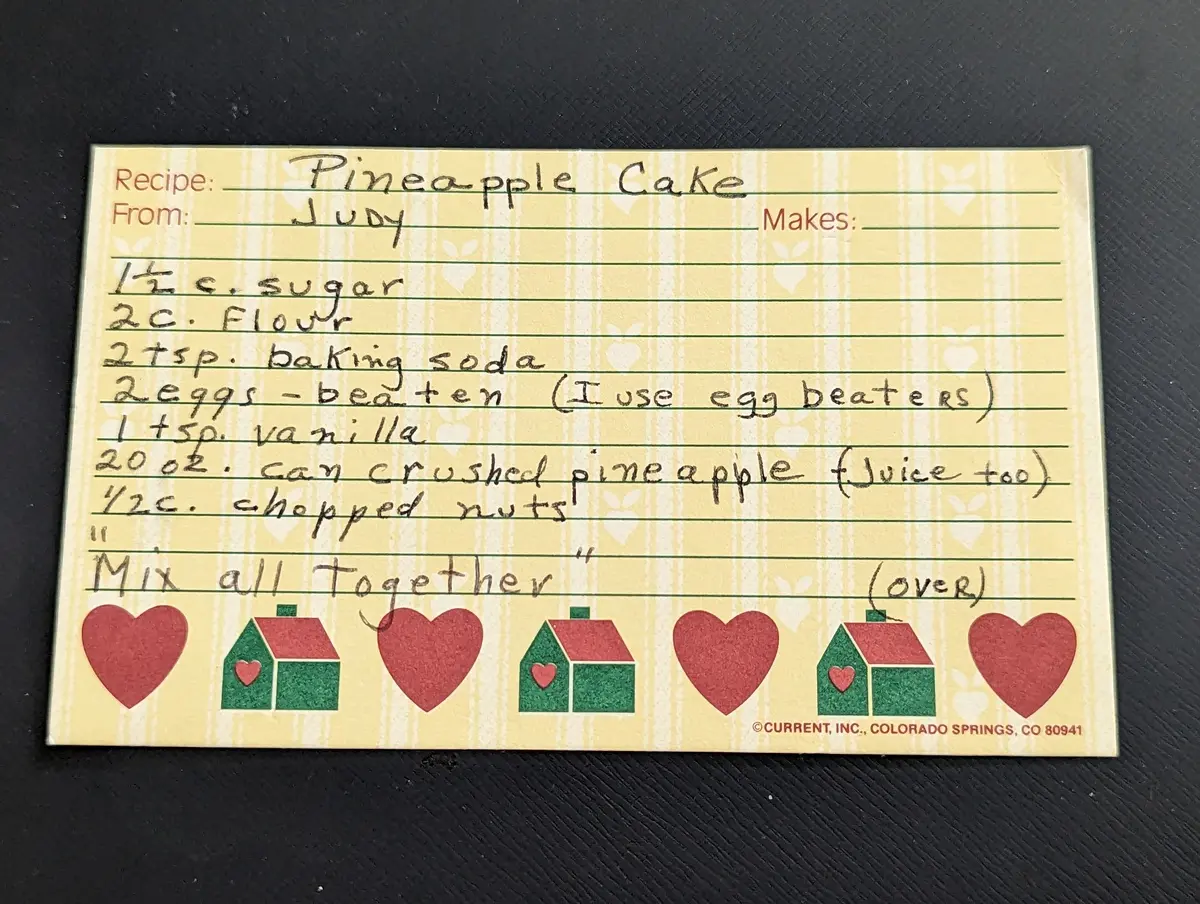 Recipe: Pineapple Cake
From: Judy Makes:
1 1/2 c. sugar
2 c. Flour
2 tsp. baking soda
2 eggs - beaten (I use egg beateRS)
1 tsp. vanilla
20 oz. can crushed pineapple (Juice too)
1/2 c. chopped nuts
"Mix all Together"
(OVeR)
©CURRENT, INC., COLORADO SPRINGS, CO 80941